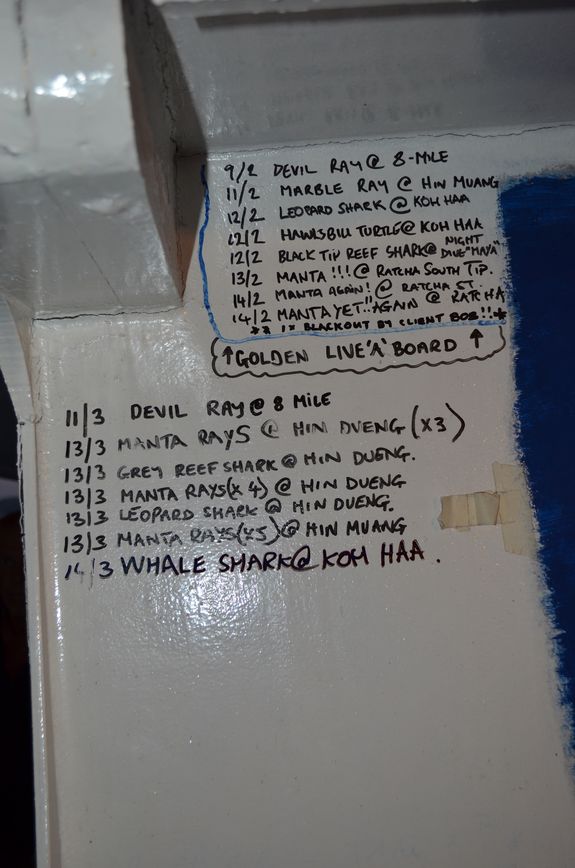 9/2 DEVIL RAY @ 8-MILE
11/2 MARBLE RAY @ HIN MUANG
12/2 LEOPARD SHARK @ KOH HAA
12/2 HAWKSBILL TURTLE @ KOH HAA
12/2 BLACK TIP REEF SHARK @ NIGHT DIVE "MAYA"
13/2 MANTA !!! @ RATCHA SOUTH TIP.
14/2 MANTA AGAIN! @ RATCHA ST.
14/2 MANTA YET!! AGAIN @ RATCHA
1X BLACKOUT BY CLIENT BOB!!*
↑GOLDEN LIVE'A'BOARD ↑
11/3 DEVIL RAY @ 8 MILE
13/3 MANTA RAYS @ HIN DUENG (X3)
13/3 GREY REEF SHARK @ HIN DUENG.
13/3 MANTA RAYS (X 4) @ HIN DUENG
13/3 LEOPARD SHARK @ HIN DUENG.
13/3 MANTA RAYS (X5) @ HIN MUANG
14/3 WHALE SHARK @ KOH HAA.